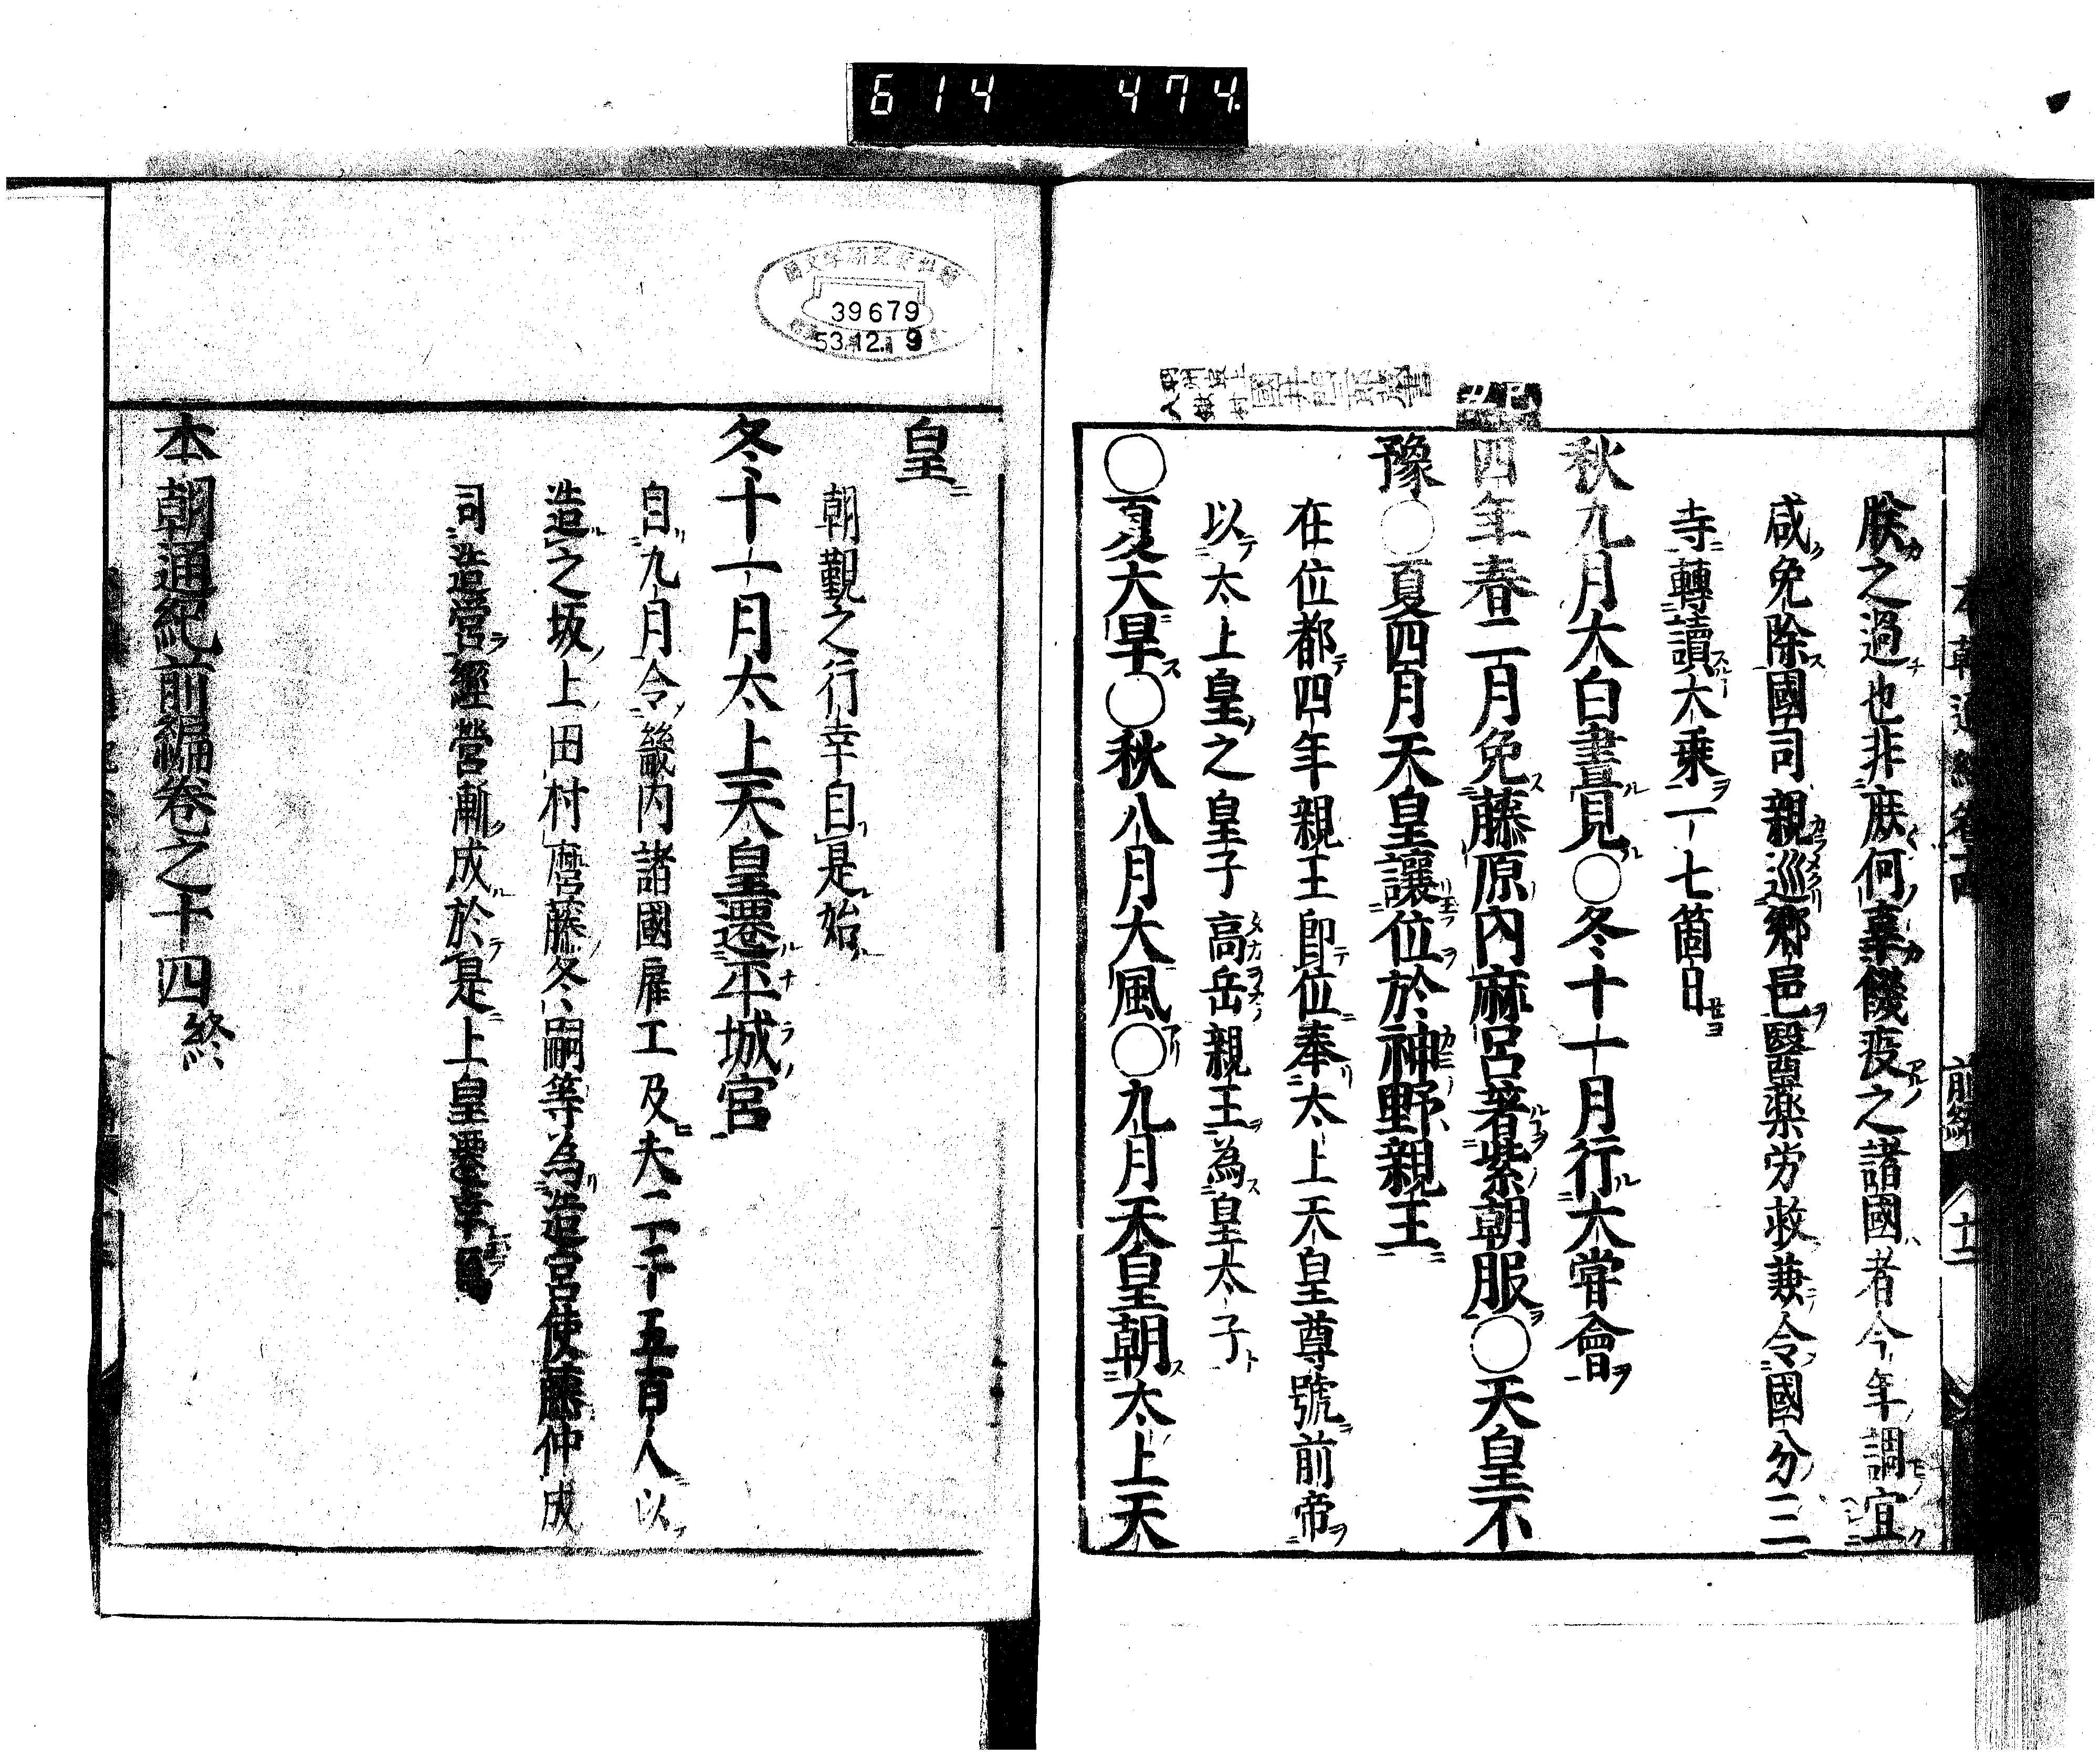 614 474
朕之過也非庶何辜饑疫之諸國者今年調宜
咸免除國司親巡郷邑醫薬労救兼令國分二
寺轉讀大乘一七箇日
秋九月太白晝見〇冬十一月行大甞會
四年春二月免藤原内麻呂著紫朝服〇天皇不
豫〇夏四月天皇讓位於神野親王
在位都四年親王即位奉太上天皇尊號前帝
以太上皇之皇子高岳親王為皇太子
〇夏大旱〇秋八月大風〇九月天皇朝太上天
皇
朝覲之行幸自是始
冬十一月太上天皇遷平城宮
自九月令畿内諸國雇工及夫二千五百人以
造之坂上田村麿藤冬嗣等為造宮使藤仲成
司造營經營漸成於是上皇遷幸
本朝通紀前編巻之十四終
39679
53.12.9